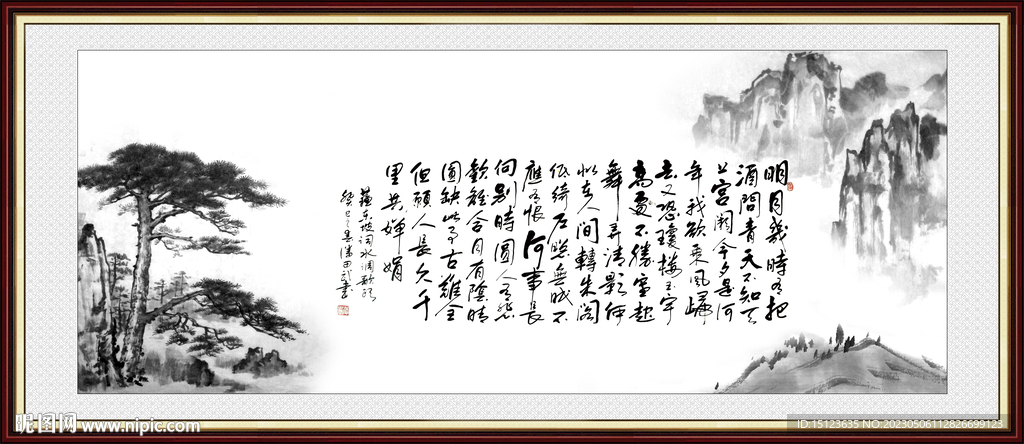 明月幾時有把
酒問青天不知天
上宮闕今夕是何
年我欲乘風歸
去又恐瓊樓玉宇
高處不勝寒起
舞弄清影何
似在人間轉朱閣
低綺户照無眠不
應有恨何事長
向別時圓人有悲
歡離合月有陰晴
圓缺此事古難全
但願人長久千
里共嬋娟
蘇東坡詞水調歌頭
昵图网 www.nipic.com
ID:15123635 NO:20230506112826699123